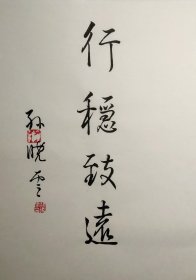 行穩致遠
孙晓云